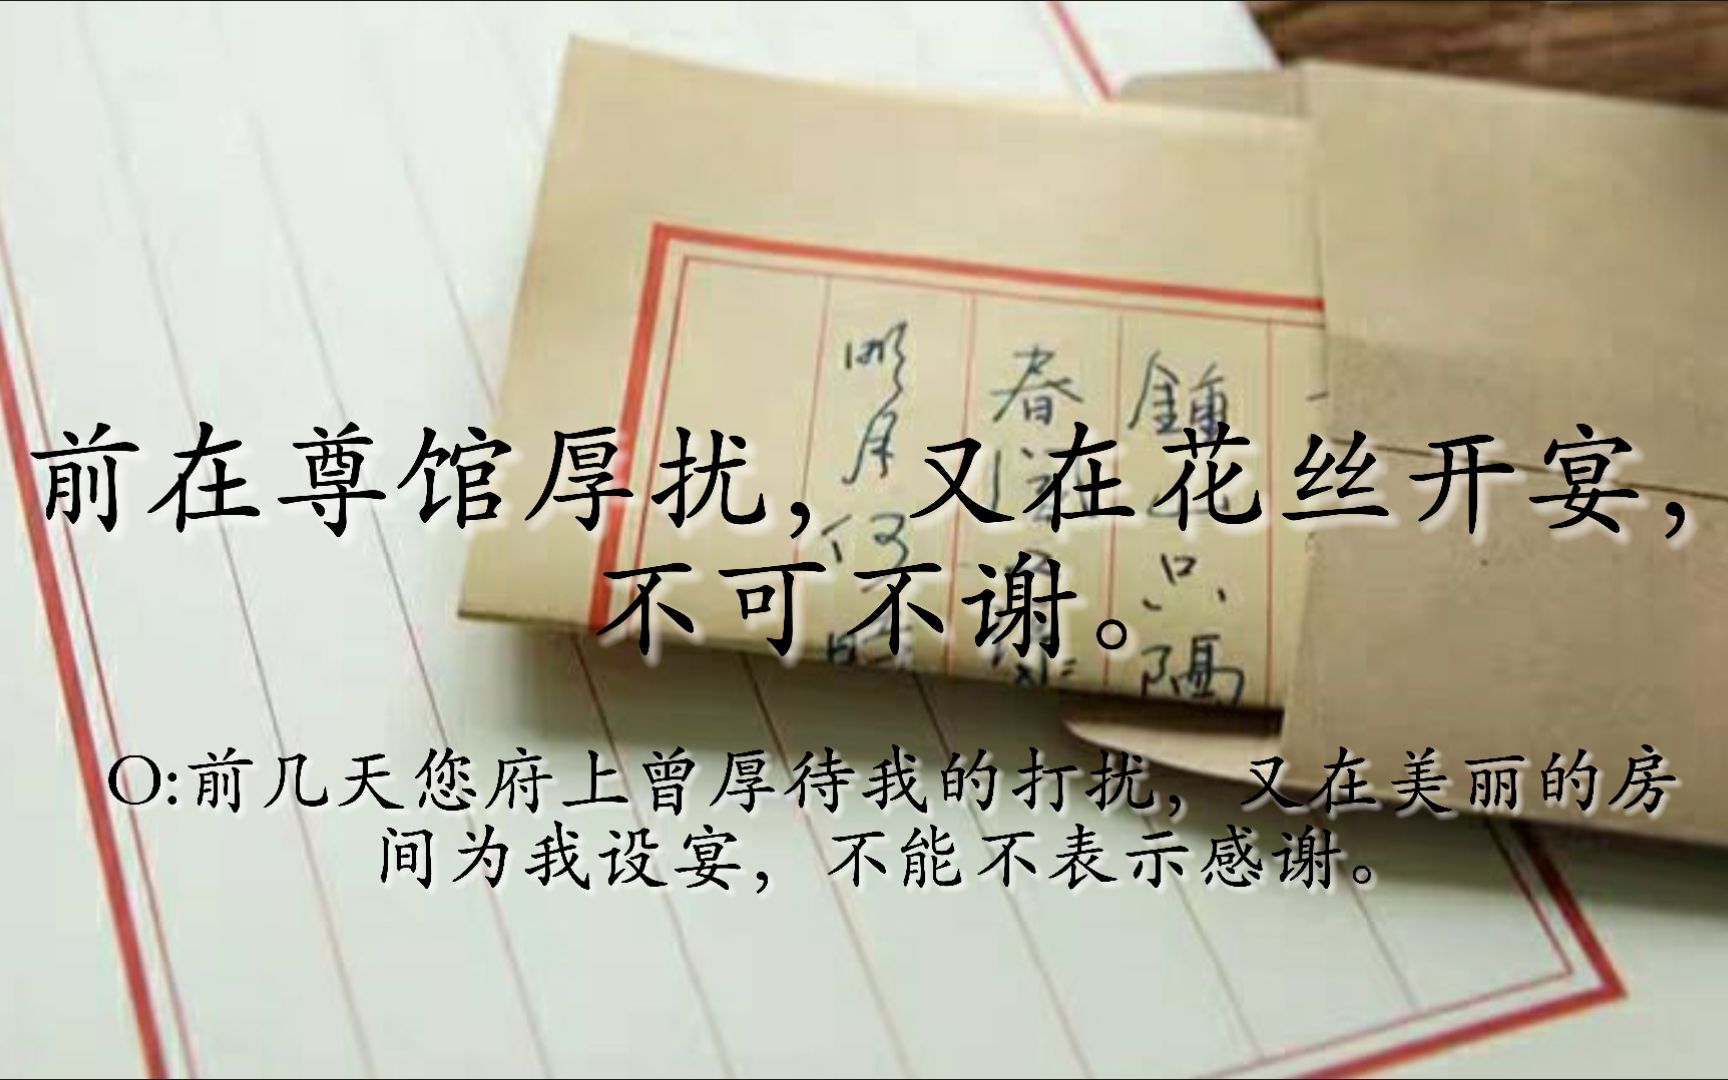 前在尊馆厚扰，又在花丝开宴，
不可不谢。
O:前几天您府上曾厚待我的打扰，又在美丽的房
间为我设宴，不能不表示感谢。
明月何時
春
鍾 只隔